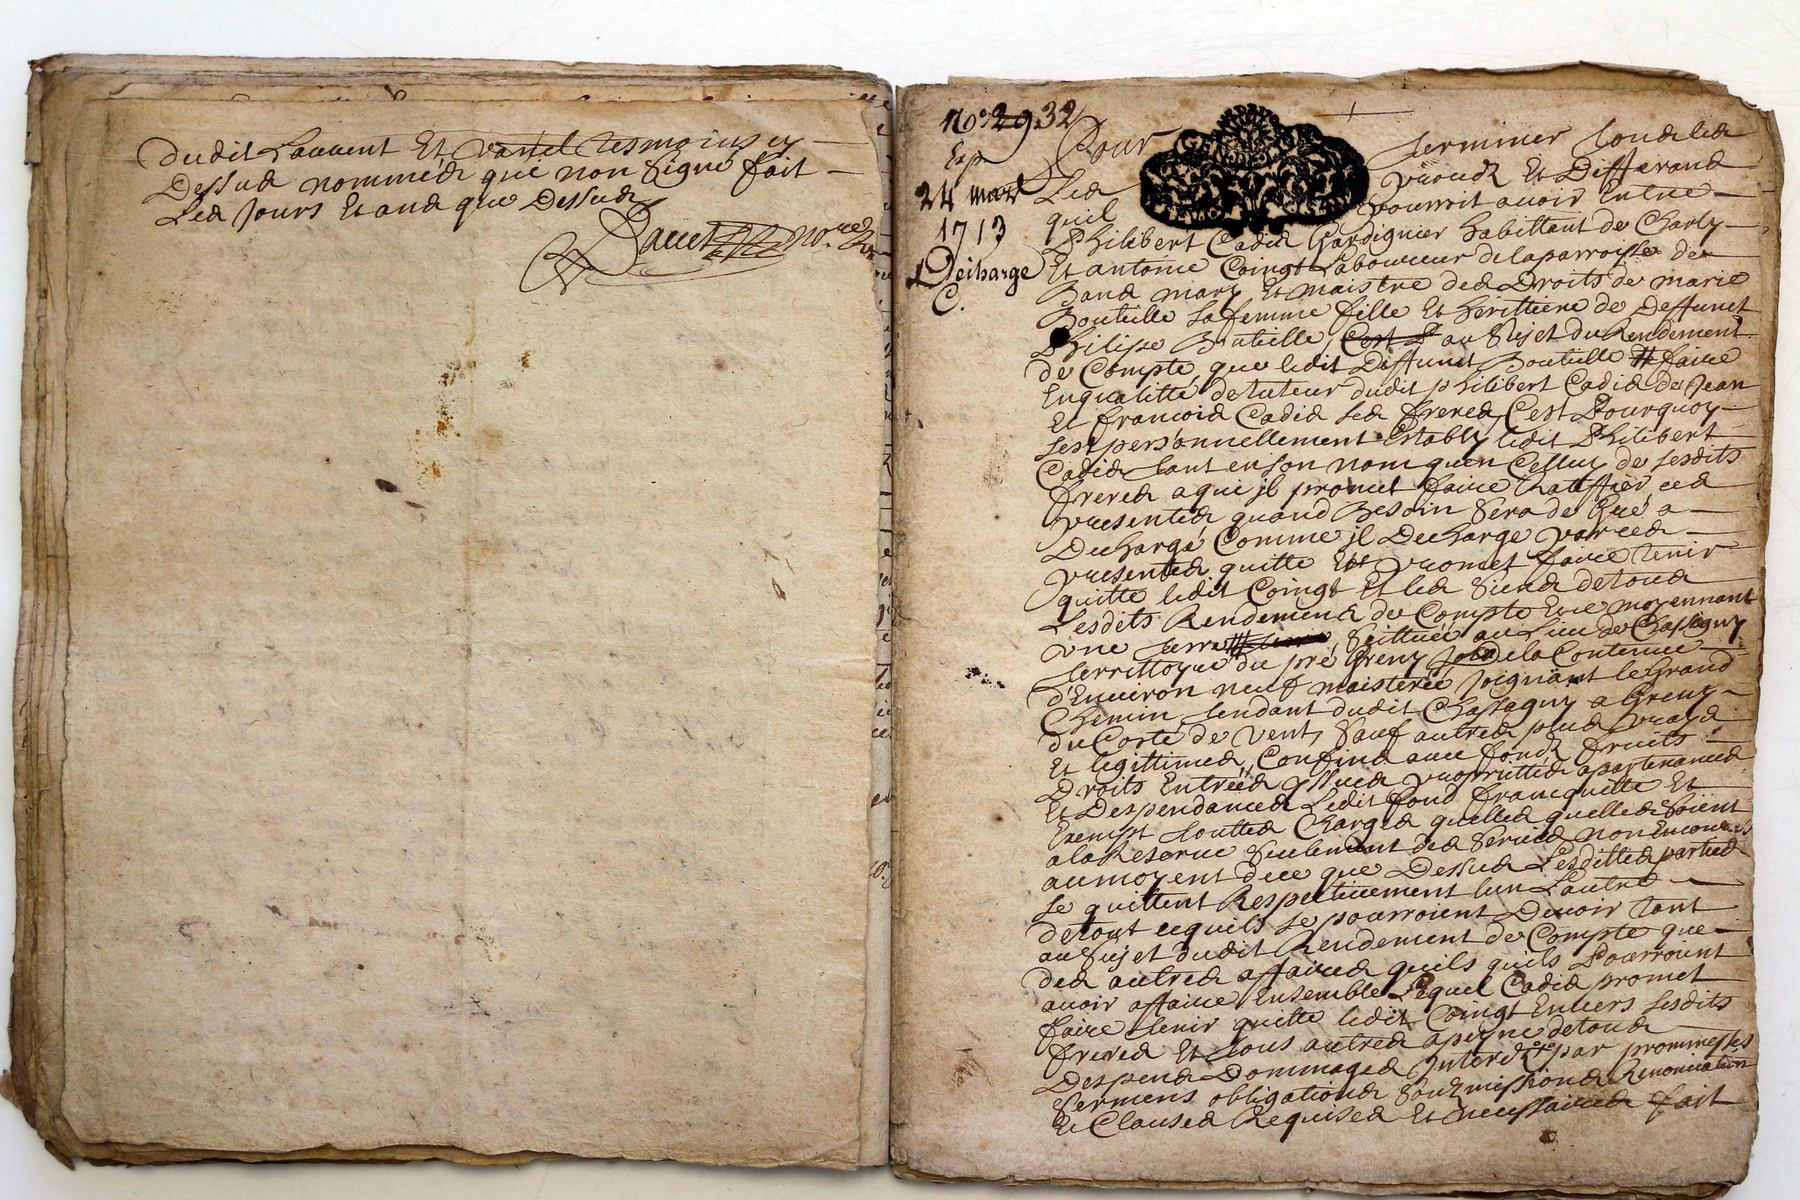 dudit Lauvent Et vanel tesmoins cy
Dessus nommés qui non signé fait
Les jours Et ans que Dessus
Dauet no.re
No. 29.32
Exp
24 mars
1713
Decharge
C.
Pour terminer tous les
Les procès Et Differand
quil pourroit avoir Entre
Philibert Cadis Jardignier habittant de Charly
Et antoine Coingt Laboureur de la parroisse de
mary Et maistre des Droits de marie
Bouteille sa femme fille Et herittiere de Deffunct
Philipe Bouteille, C'est P au sujet du Rendement
de Compte que ledit Diffunct Bouteille faire
En qualitté de tuteur dudit philibert Cadis de Jean
Et francois Cadis ses freres, C'est Pourquoy
sest personnellement Estably ledit Philibert
Cadis tant en son nom quen Celluy de sesdits
freres a qui jl promet faire Rattiffier ces
presentes quand Besoin sera de Gré a
Dechargé Comme jl Decharge par ces
presentes quitte Et promet faire tenir
quitte ledit Coingt Et les siens de tous
Lesdits Rendement de Compte Et ce moyennant
vne terre scittuée au Lieu de Chassagny
territtoyre du pré Greny de la Contenue
d'Environ neuf maisterée joignant le Grand
Chemin tendant dudit Chassagny a Greny
du Costé de vent, sauf autres plus vrays
Et legittimes, Confins avec fonds fruits
Droits Entrées yssues propriettés apartenances
Et Despendances Ledit fond francquitte Et
Exempt touttes Charges quelles quelles soient
a la Reserue seulement des seruis non Encourus
au moyent de ce que Dessus Lesdittes parties
se quittent Respectiuement lun Lautre
de tout ce quils se pourroient Deuoir tant
au sujet dudit Rendement de Compte que
des autres affaires quils quils Pourroient
auoir affaire Ensemble Lequel Cadis promet
faire tenir quitte ledit Coingt Enuers sesdits
freres Et tous autres a peyne de tous
Despens Dommages Interets par prommesses
serments obligations soubmissions Renonciation
Et Clauses Requises Et necessaires fait